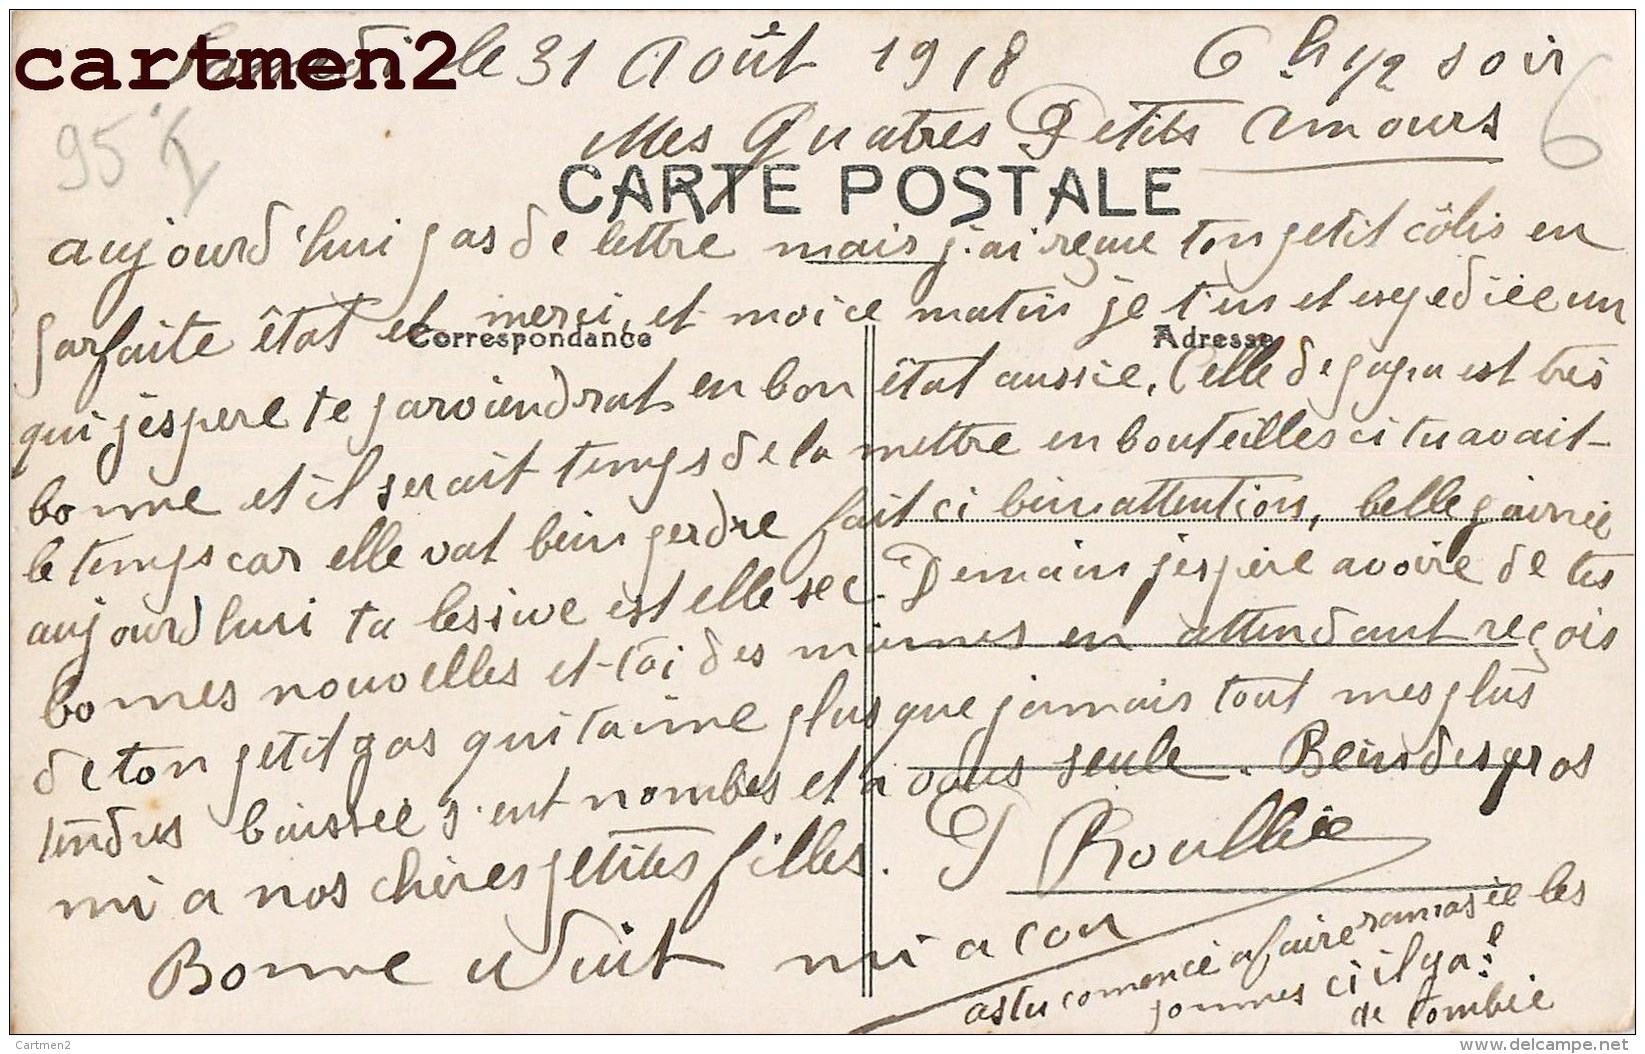 cartmen2
Samedi le 31 Août 1918 6 h 1/2 soir
95 6
Mes Quatres Petits Amours
CARTE POSTALE
aujourd'hui pas de lettre mais j'ai reçue ton petit côlis en
parfaite êtat et merci, et moi ce matin je t'en et expediée un
Correspondance Adresse
qui j'espere te parviendrat en bon êtat aussie, Celle de papa est très
bonne et il serait temps de la mettre en bouteilles ci tu avait
le temps car elle vat bein perdre fait ci bein attentions, belle journée
aujourd hui ta lessive est elle sec. Demain j'espère avoire de tes
bonnes nouvelles et toi des miennes en attendant reçois
de ton petit gas qui t'aime plus que jamais tout mes plus
tendres baissée s'ent nombes et a vous seule. Bein des gros
mi a nos chères petites filles. P Roullie
Bonne Nuit mi a cou
as tu comencé a faire ramasée les
pommes ci il y a
de tombée
Cartmen2
www.delcampe.net